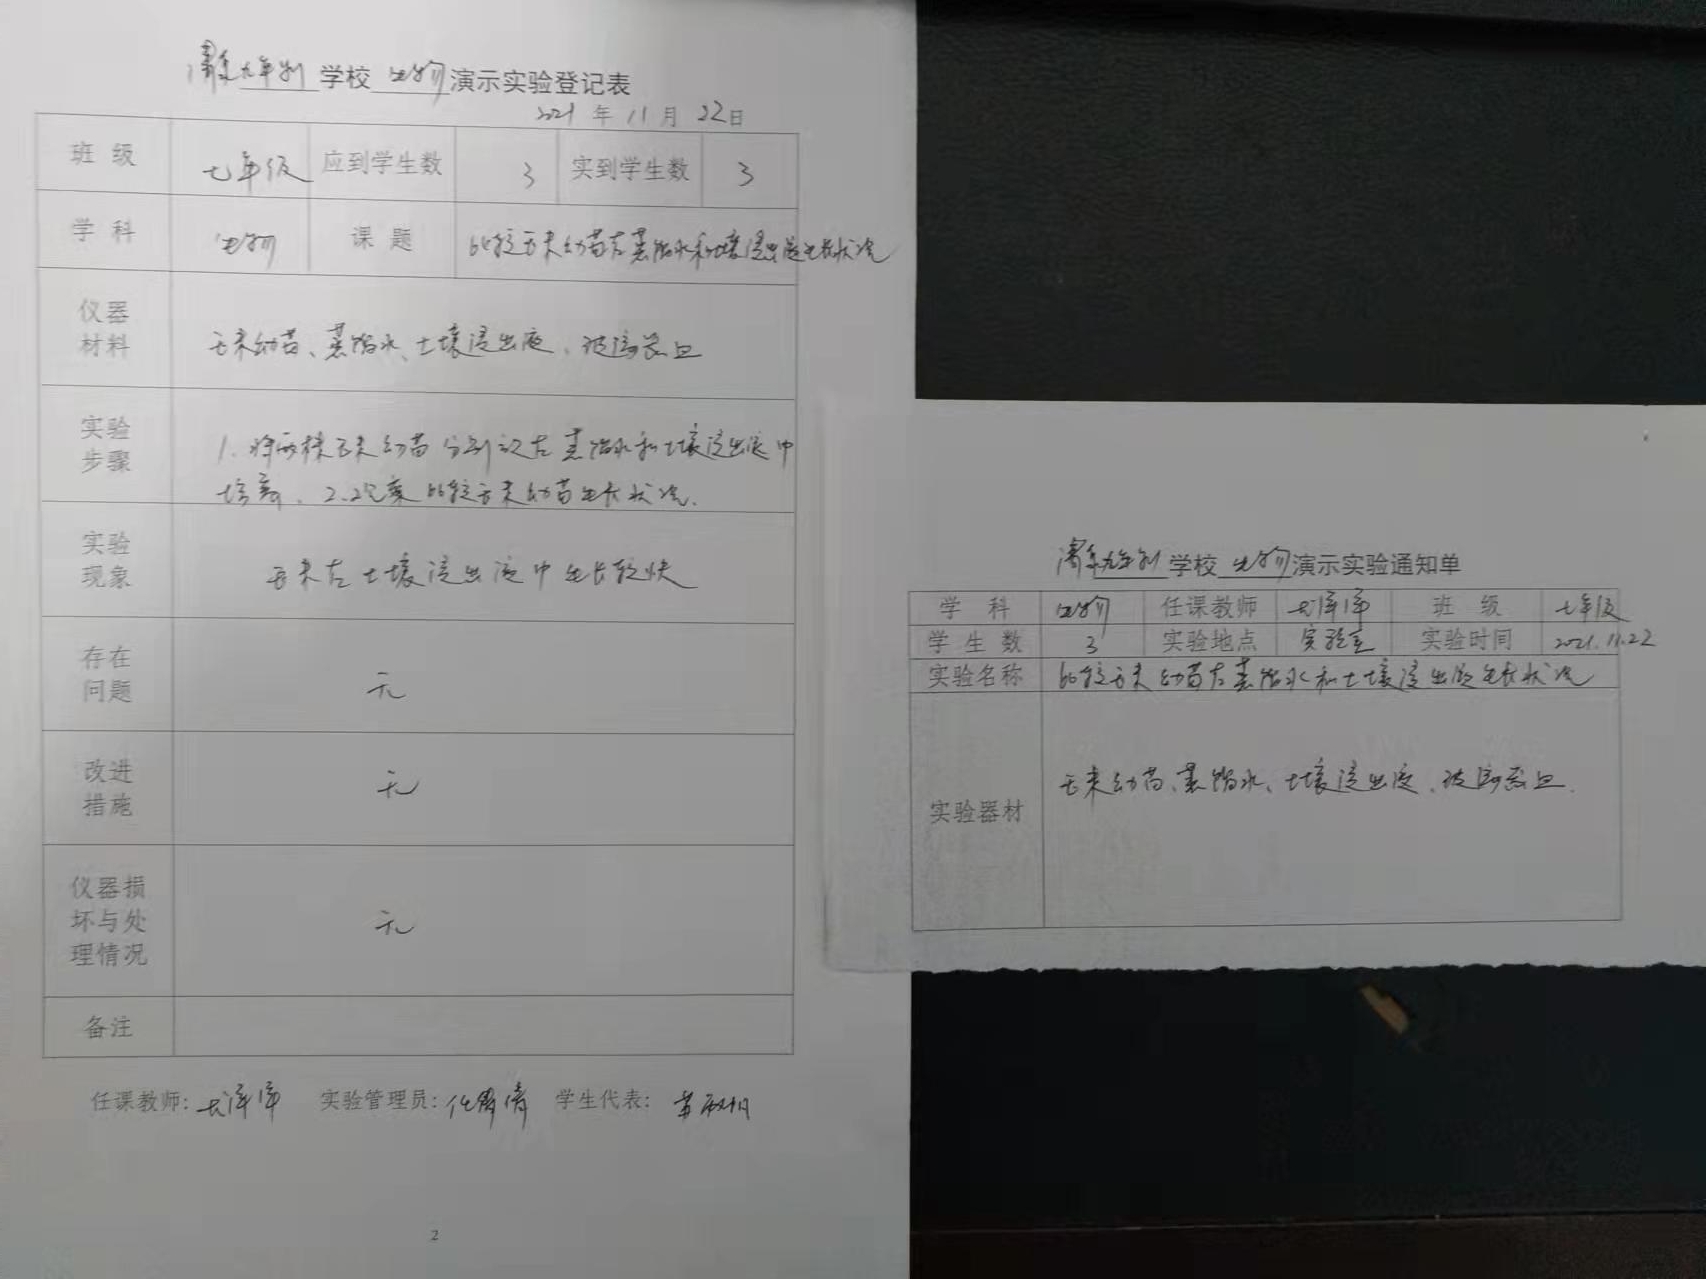 九年制学校生物演示实验登记表
2021年11月22日
班级 七年级 应到学生数 3 实到学生数 3
学科 生物 课题 比较玉米幼苗在蒸馏水和土壤浸出液生长状况
仪器材料 玉米幼苗、蒸馏水、土壤浸出液、玻璃器皿
实验步骤 1.将两株玉米幼苗分别放在蒸馏水和土壤浸出液中
培养。2.观察比较玉米幼苗生长状况.
实验现象 玉米在土壤浸出液中生长较快
存在问题 无
改进措施 无
仪器损坏与处理情况 无
备注
任课教师: 实验管理员: 学生代表:
2
九年制学校生物演示实验通知单
学科 生物 任课教师 班级 七年级
学生数 3 实验地点 实验室 实验时间 2021.11.22
实验名称 比较玉米幼苗在蒸馏水和土壤浸出液生长状况
实验器材 玉米幼苗、蒸馏水、土壤浸出液、玻璃器皿.